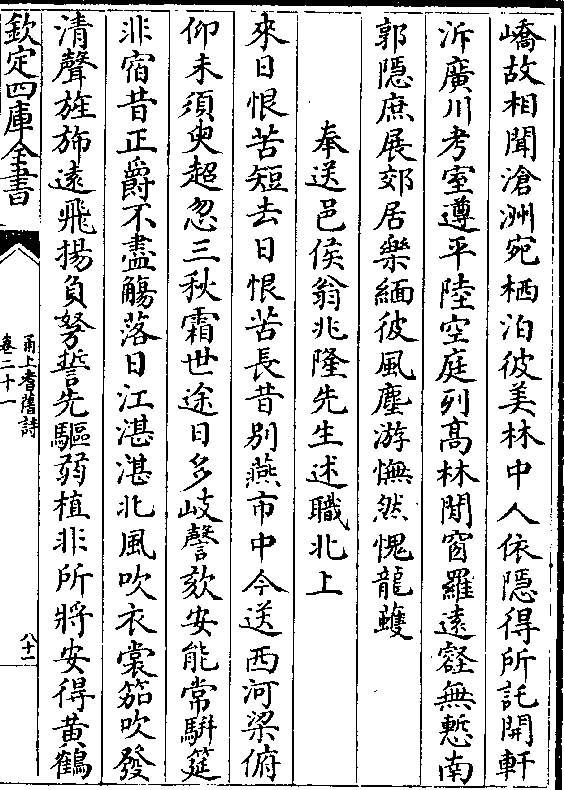 嶠故相聞滄洲宛栖泊彼美林中人依隱得所託開軒
泝廣川考室遵平陸空庭列髙林閒窗羅遠壑無慙南
郭隱庶展郊居樂緬彼風塵游憮然愧龍蠖
奉送邑侯翁兆隆先生述職北上
來日恨苦短去日恨苦長昔别燕市中今送西河梁俯
仰未須臾超忽三秋霜世途日多岐謦欬安能常駢筵
非宿昔正爵不盡觴落日江湛湛北風吹衣裳笳吹發
清聲旌斾遠飛揚負弩誓先驅弱植非所將安得黄鶴
欽定四庫全書
甬上耆舊詩
卷二十一
八十一